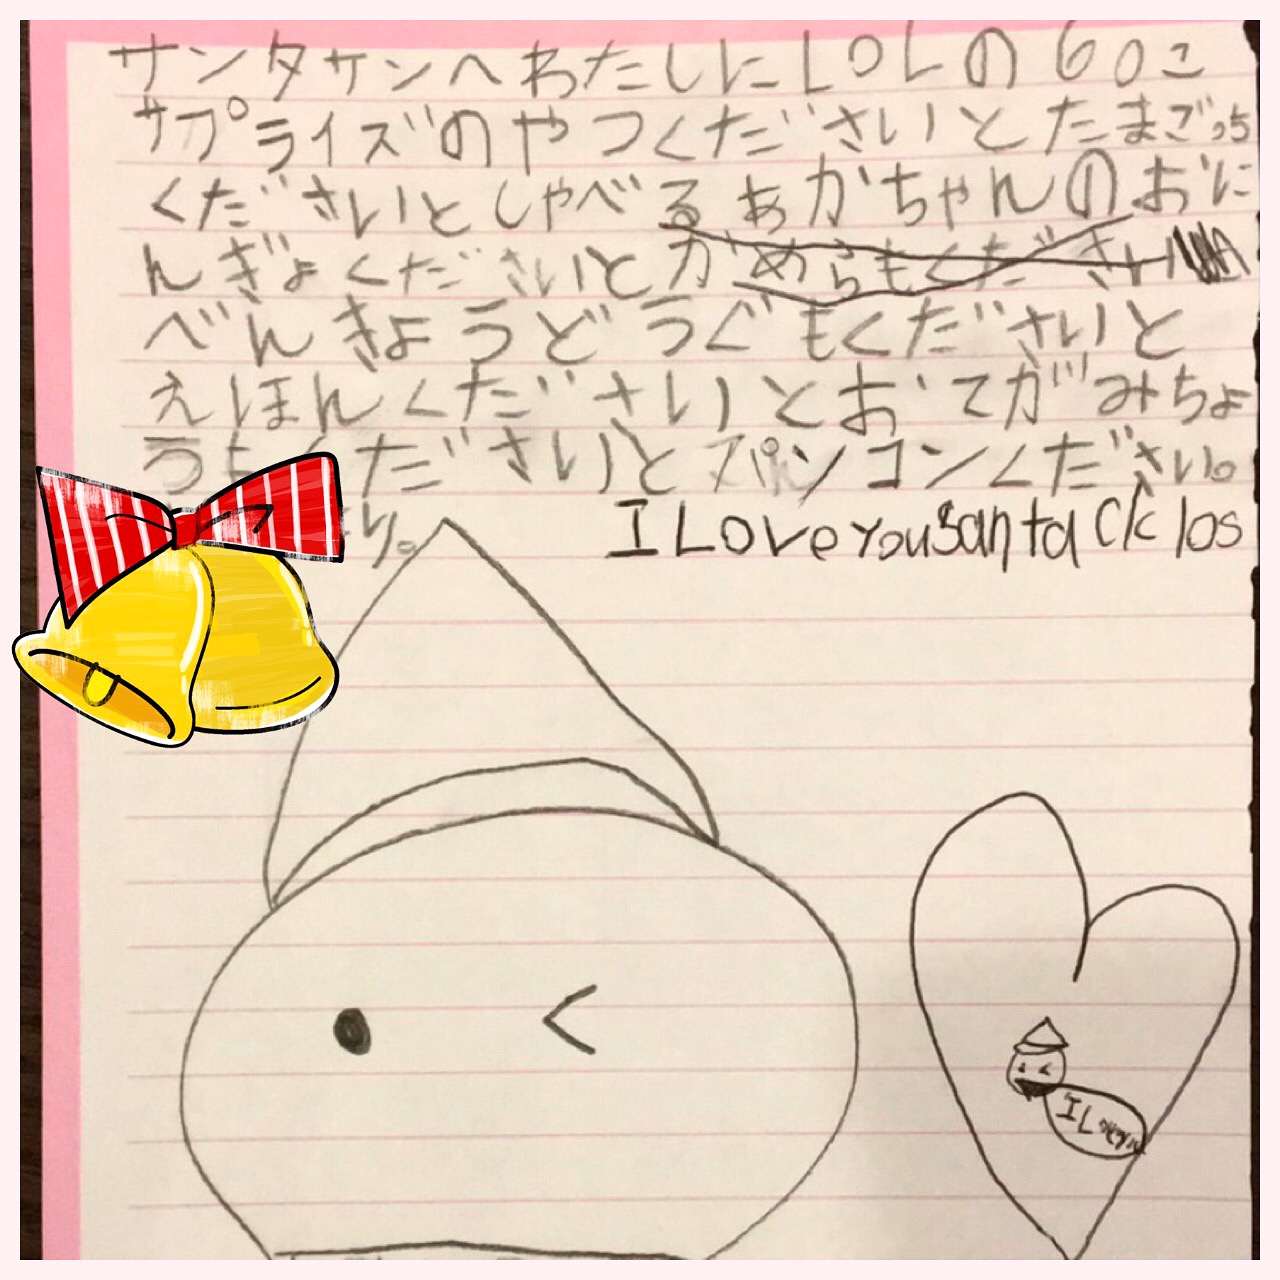 サンタサンへわたしにLOLの60こ
サプライズのやつくださいとたまごっち
くださいとしゃべるあかちゃんのおに
んぎょくださいとがめらもくださ
べんきょうどうぐもくださいと
えほんくださいとおてがみちょ
うもくださいとパソコンください。
り。 I Love you santa Ck los
I Love you